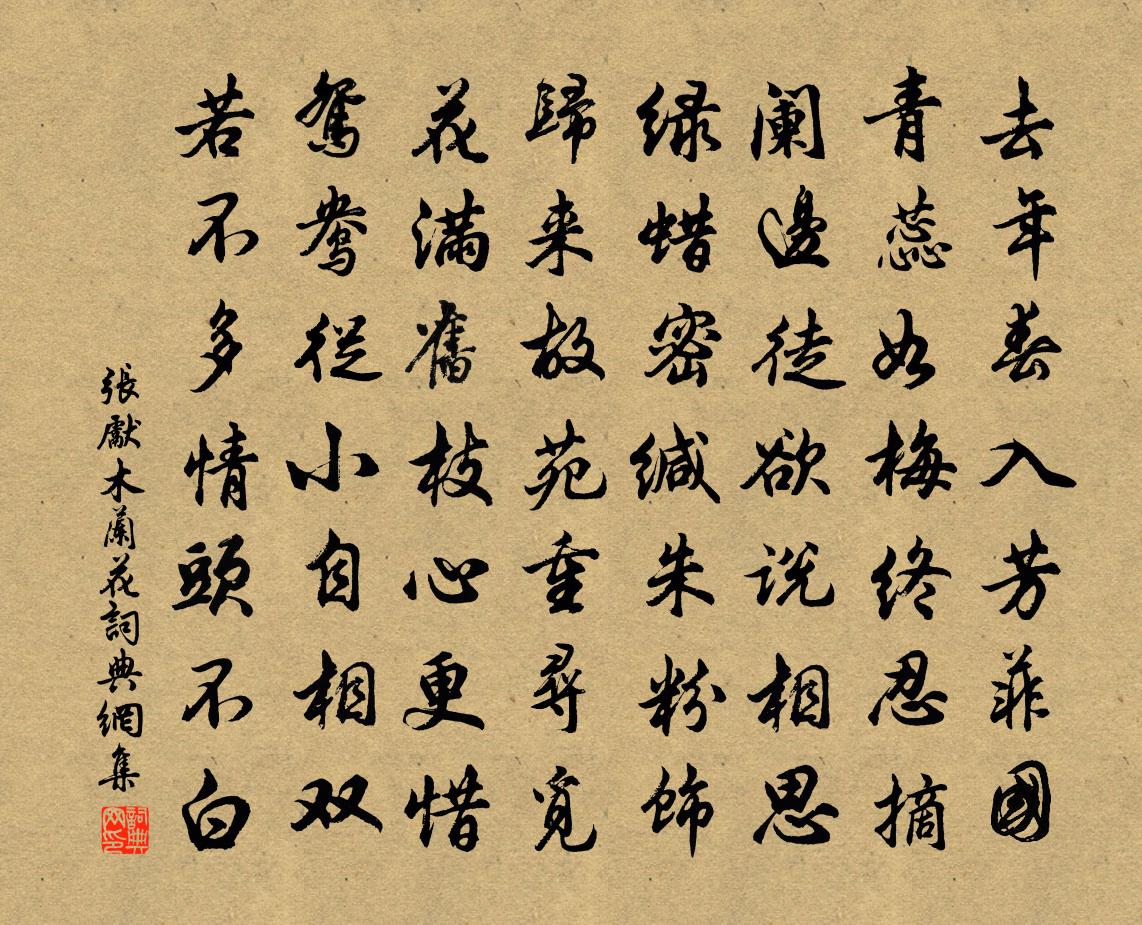 去年春入芳菲國
青蕊如梅终忍摘
阑邊徒欲说相思
绿蜡密缄朱粉饰
歸来故苑重尋覓
花滿舊枝心更惜
鸳鸯從小自相双
若不多情頭不白
張獻木蘭花詞典網集
詞典網印